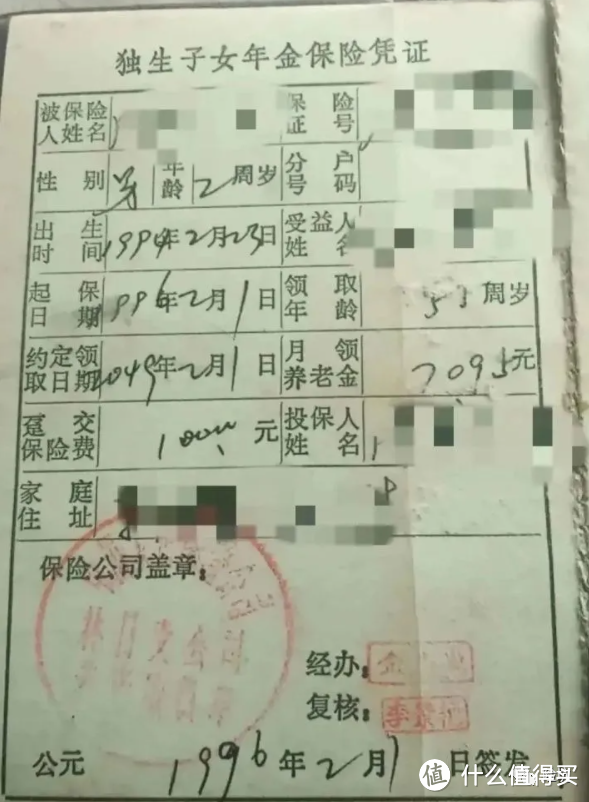 独生子女年金保险凭证
被保险人姓名 保险证号
性别 男 年龄 2周岁 分户号码
出生时间 1994年2月23日 受益人姓名
起保日期 1996年2月1日 领取年龄 55周岁
约定领取日期 2049年2月1日 月领养老金 7095元
趸交保险费 1000元 投保人姓名
家庭住址
保险公司盖章:
经办:
复核: 李
公元 1996年2月1日签发
值 什么值得买